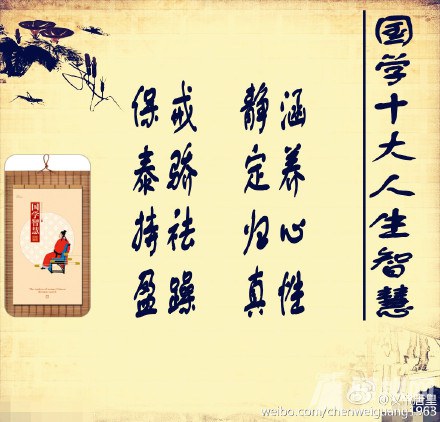 国学十大人生智慧
涵养心性
静定归真
戒骄祛躁
保泰持盈
国学智慧
weibo.com/chenweiguang1963